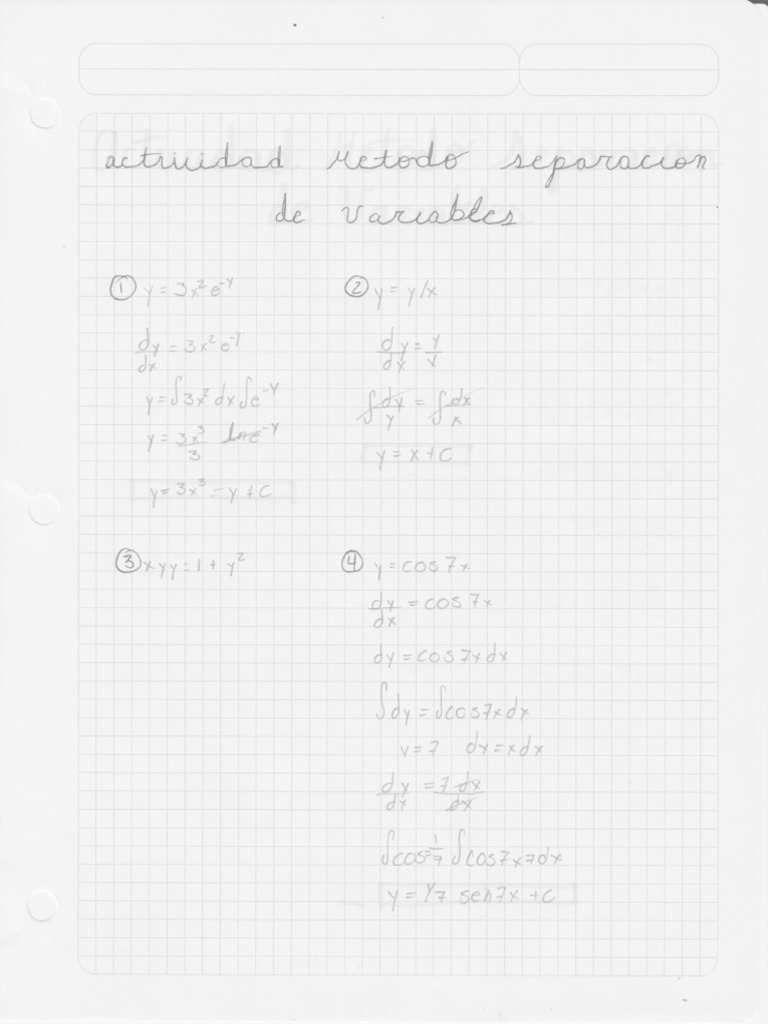 actividad Metodo separacion
de Variables
① y = 3x² e⁻ʸ
dy/dx = 3x² e⁻ʸ
y = ∫3x² dx ∫e⁻ʸ
y = 3x³/3 lne⁻ʸ
y = 3x³ - y + C
② y = y/x
dy/dx = y/x
∫dy/y = ∫dx/x
y = x + C
③ xyy = 1 + y²
④ y = cos 7x
dy/dx = cos 7x
dy = cos 7x dx
∫dy = ∫cos 7x dx
v = 7 dx = x dx
dy/dx = 7 dx/dx
∫cos 1/7 ∫cos 7x 7dx
y = 1/7 sen 7x + C